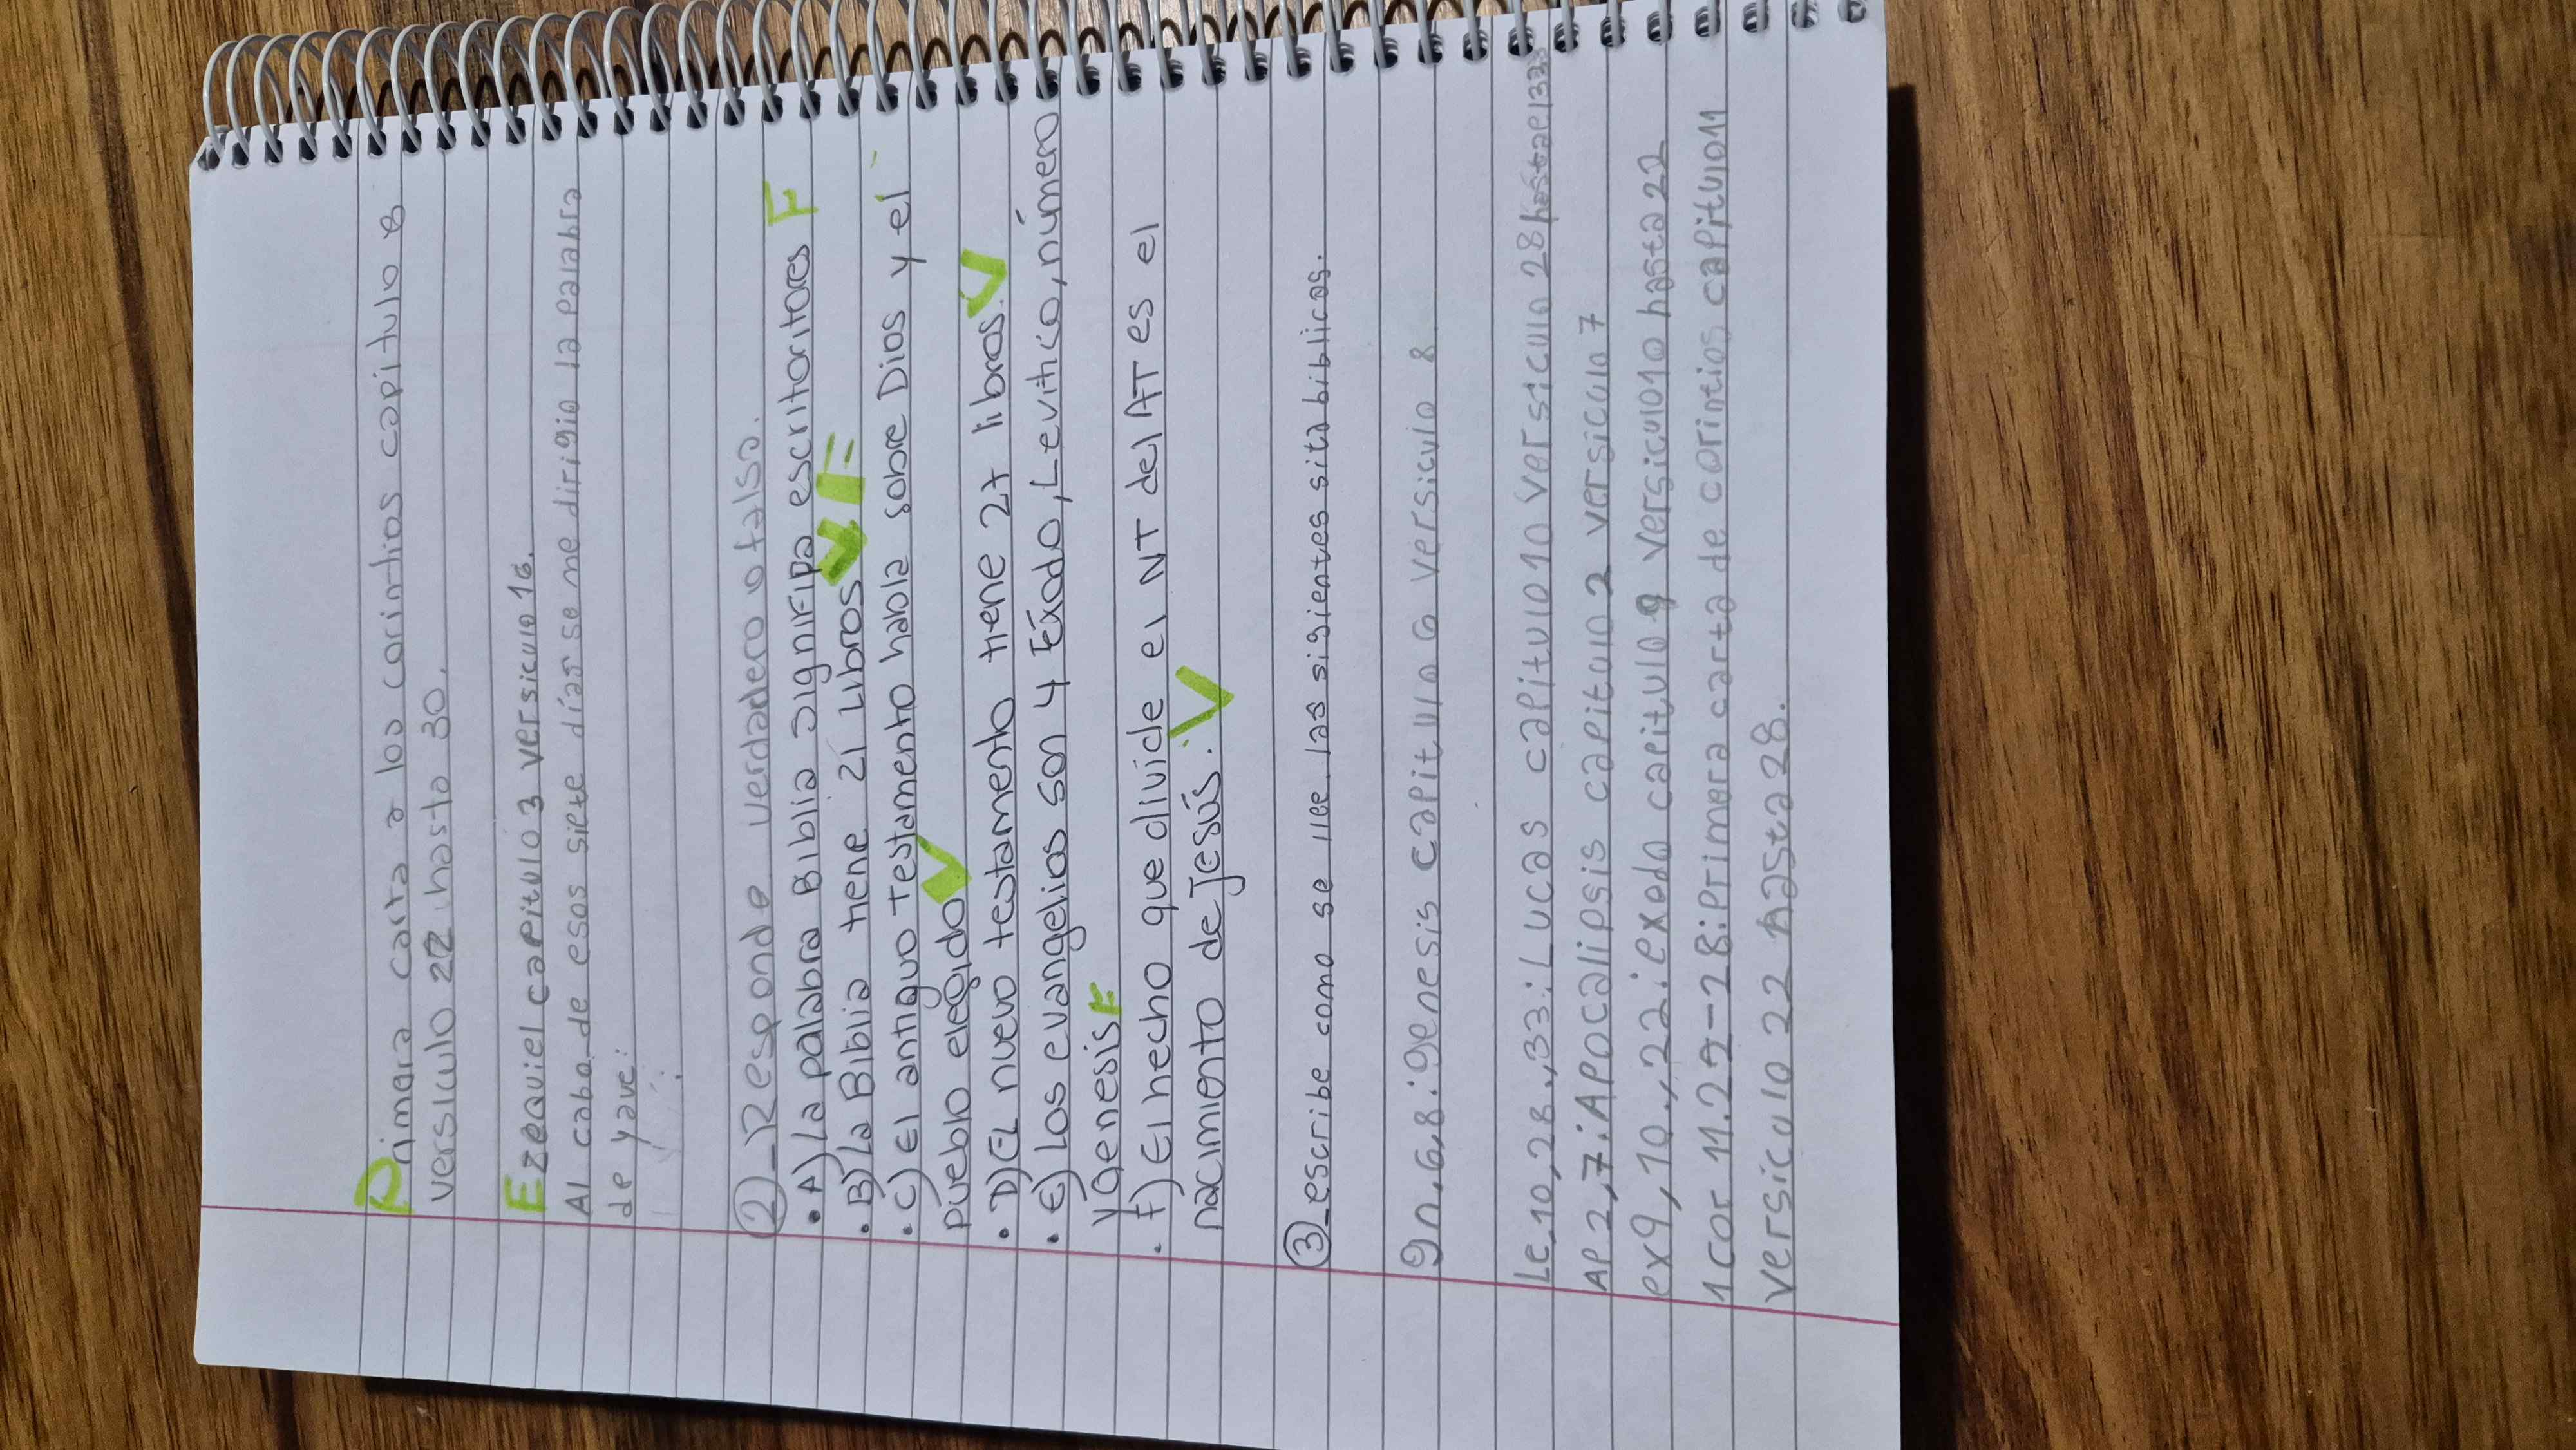 Primera carta a los corintios capitulo 8
versiculo 22 hasta 30.
Ezequiel capitulo 3 versiculo 16.
Al cabo de esos siete días se me dirigio la palabra
de yavé:
2_Responde verdadero o falso.
• A) La palabra Biblia significa escritoritores F
• B) La Biblia tiene 21 Libros V F
• C) El antiguo Testamento habla sobre Dios y el
pueblo elegido V
• D) EL nuevo testamento tiene 27 libros. V
• E) Los evangelios son 4 Éxodo, Levitico, número
y Genesis F
• f) El hecho que divide el NT del AT es el
nacimiento de Jesús. V
3_escribe como se llee las sigientes sita biblicas.
gn.6,8: genesis capitulo 6 versiculo 8
Lc,10,28.,33: Lucas capitulo 10 versiculo 28 hasta el 33
AP 2,7: APocalipsis capitulo 2 versiculo 7
ex9,10.,22: exodo capitulo 9 versiculo 10 hasta 22
1cor 11.22-28: primera carta de corintios capitulo 11
versiculo 22 hasta 28.